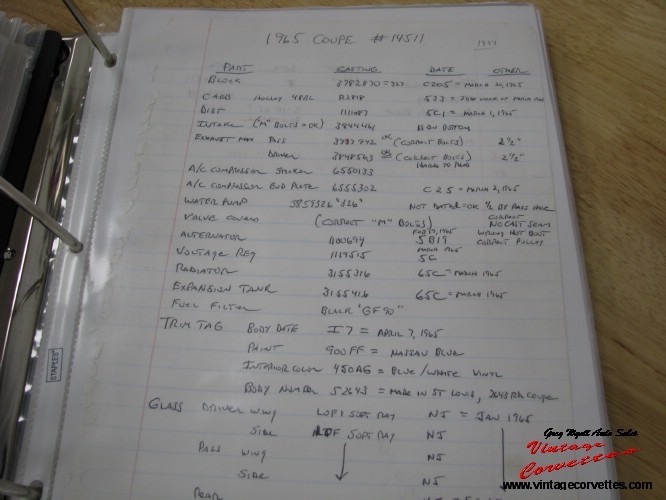 1965 COUPE #14511
PART CASTING DATE OTHER
BLOCK 3782870 = 327 C205 = MARCH 20, 1965
CARB HOLLEY 4BBL R2818 533 = WEEK OF MARCH
DIST 1111087 5C1 = MARCH 1, 1965
INTAKE ("M" BOLTS = OK) 3844461 ON BOTTOM
EXHAUST MAN PASS 3797742 OK (CORRECT BOLTS) 2 1/2"
DRIVER 3848563 OK (CORRECT BOLTS) 2 1/2"
HARD TO READ
A/C COMPRESSOR STICKER 6550133
A/C COMPRESSOR BODY PLATE 6555302 C 25 = MARCH 2, 1965
WATER PUMP 3859326 "326" NOT DATED = OK 1/2 BY PASS HOLE
VALVE COVERS (CORRECT "M" BOLTS) CORRECT NO CAST SEAM
ALTERNATOR 1100694 FEB 19, 1965 5B19 WRONG NUT BUT CORRECT PULLEY
VOLTAGE REG 1119515 MARCH 1965 5C
RADIATOR 3155316 65C = MARCH 1965
EXPANSION TANK 3155416 65C = MARCH 1965
FUEL FILTER BLACK "GF 90"
TRIM TAG BODY DATE I7 = APRIL 7, 1965
PAINT 900FF = NASSAU BLUE
INTERIOR COLOR 450AG = BLUE/WHITE VINYL
BODY NUMBER S2643 = MADE IN ST LOUIS, 2643RD COUPE
GLASS DRIVER WING LOF SOFT RAY NJ = JAN 1965
SIDE LOF SOFT RAY NJ
PASS WING NJ
SIDE NJ
REAR
STAPLES
Greg Wyatt Auto Sales
Vintage
Corvettes
www.vintagecorvettes.com